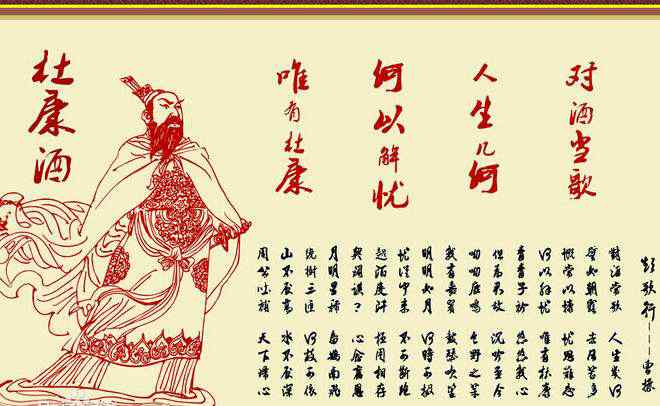 对酒当歌
人生几何
何以解忧
唯有杜康
杜康酒
短歌行---曹操
对酒当歌 人生几何
譬如朝露 去日苦多
慨当以慷 忧思难忘
何以解忧 唯有杜康
青青子衿 悠悠我心
但为君故 沉吟至今
呦呦鹿鸣 食野之苹
我有嘉宾 鼓瑟吹笙
明明如月 何时可掇
忧从中来 不可断绝
越陌度阡 枉用相存
契阔谈? 心念旧恩
月明星稀 乌鹊南飞
绕树三匝 何枝可依
山不厌高 水不厌深
周公吐哺 天下归心